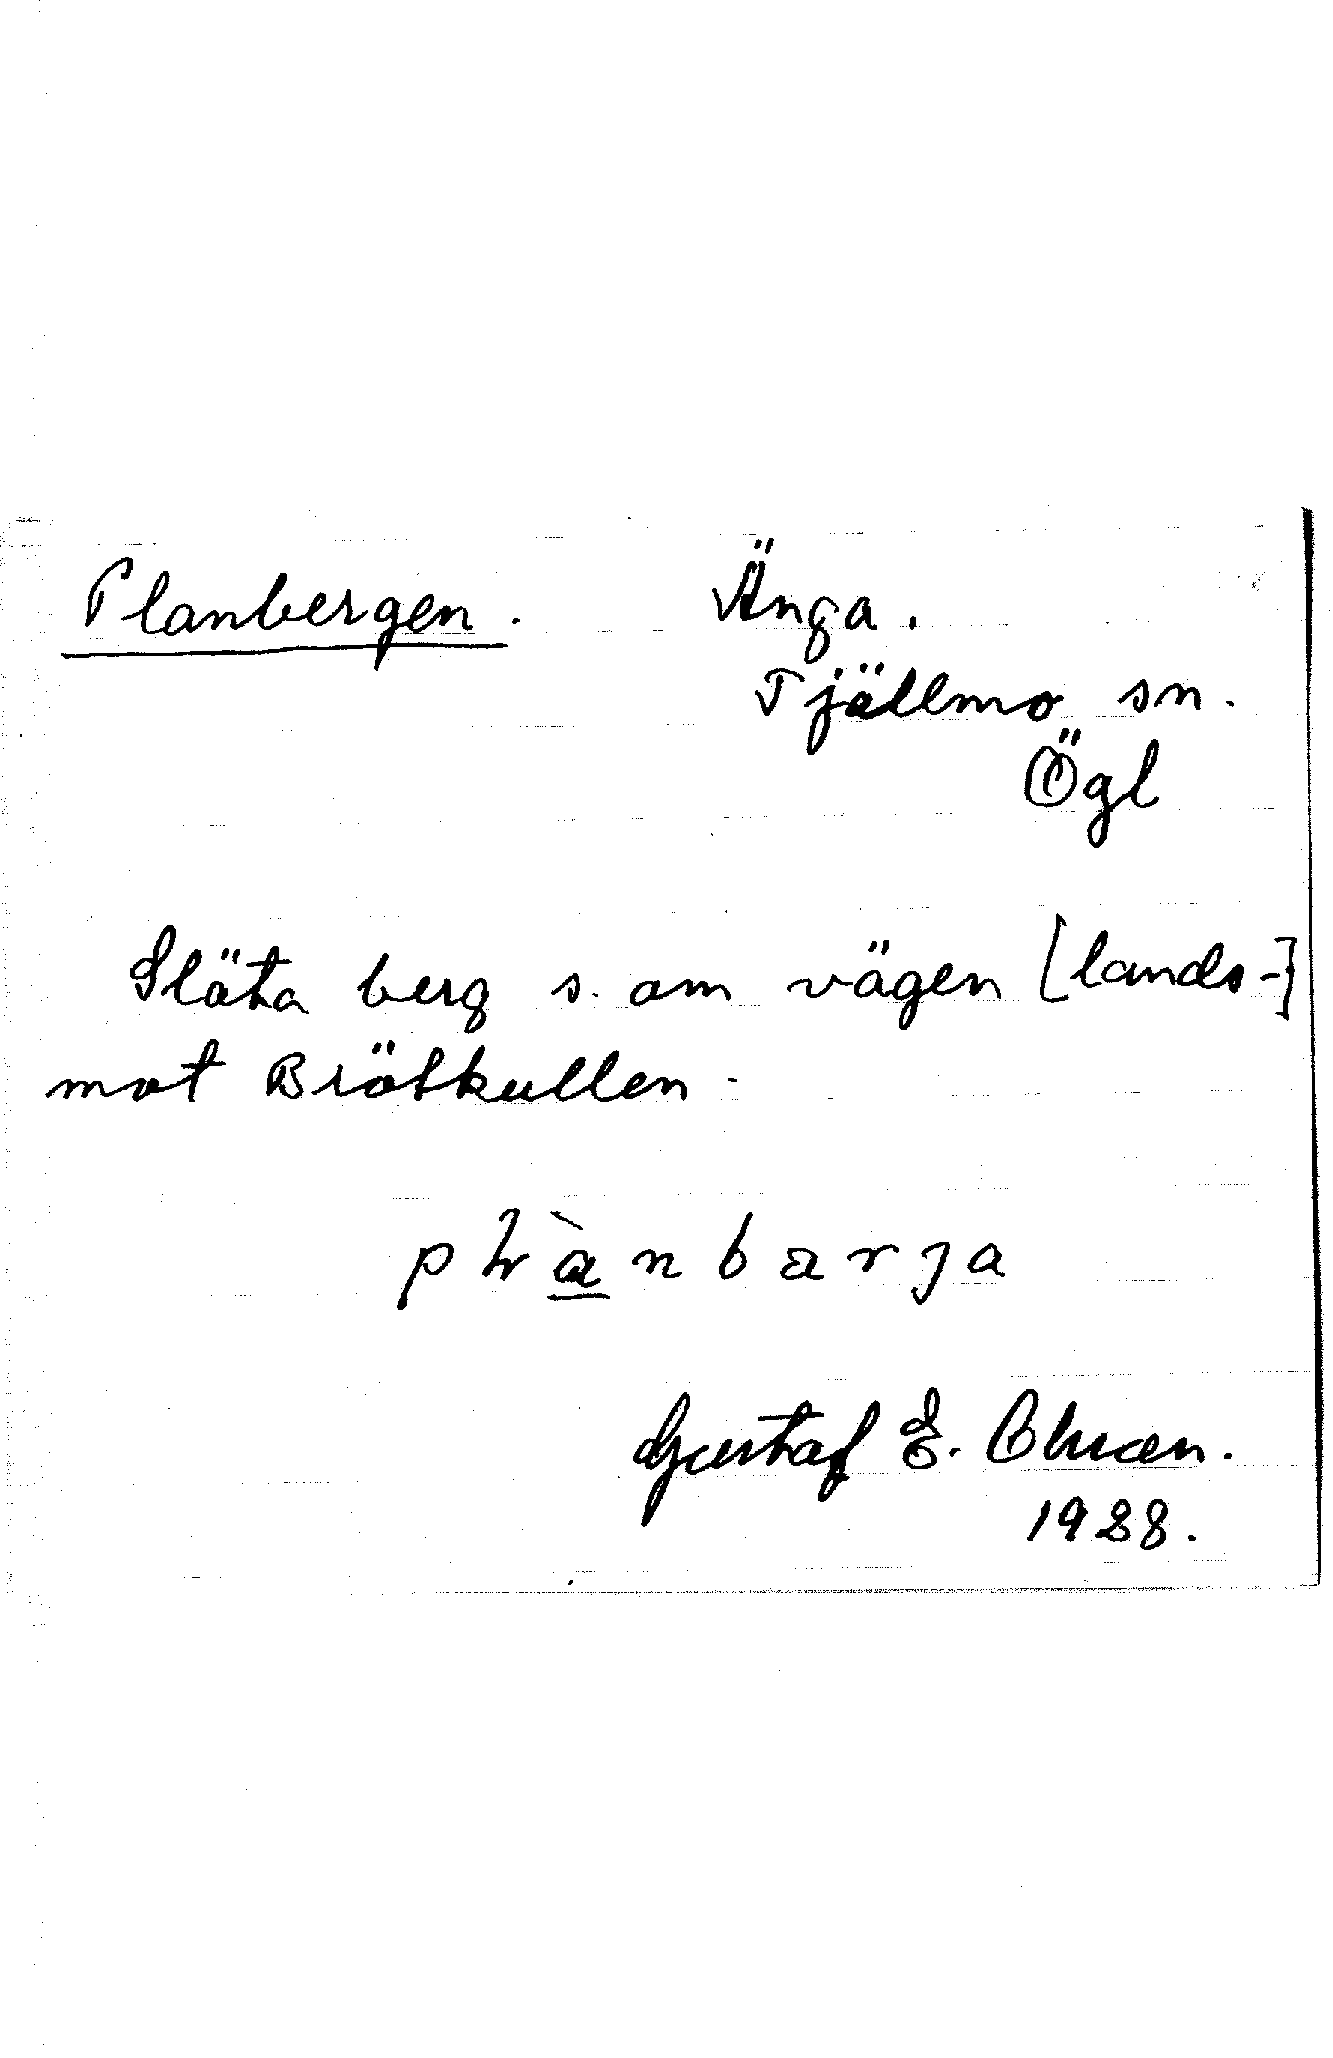 Planbergen. Änga.
Tjällmo sn.
Ögl
Släta berg s. om vägen [lands-]
mot Brötkullen.
pɫànbarja
Gustaf E. Olman.
1928.